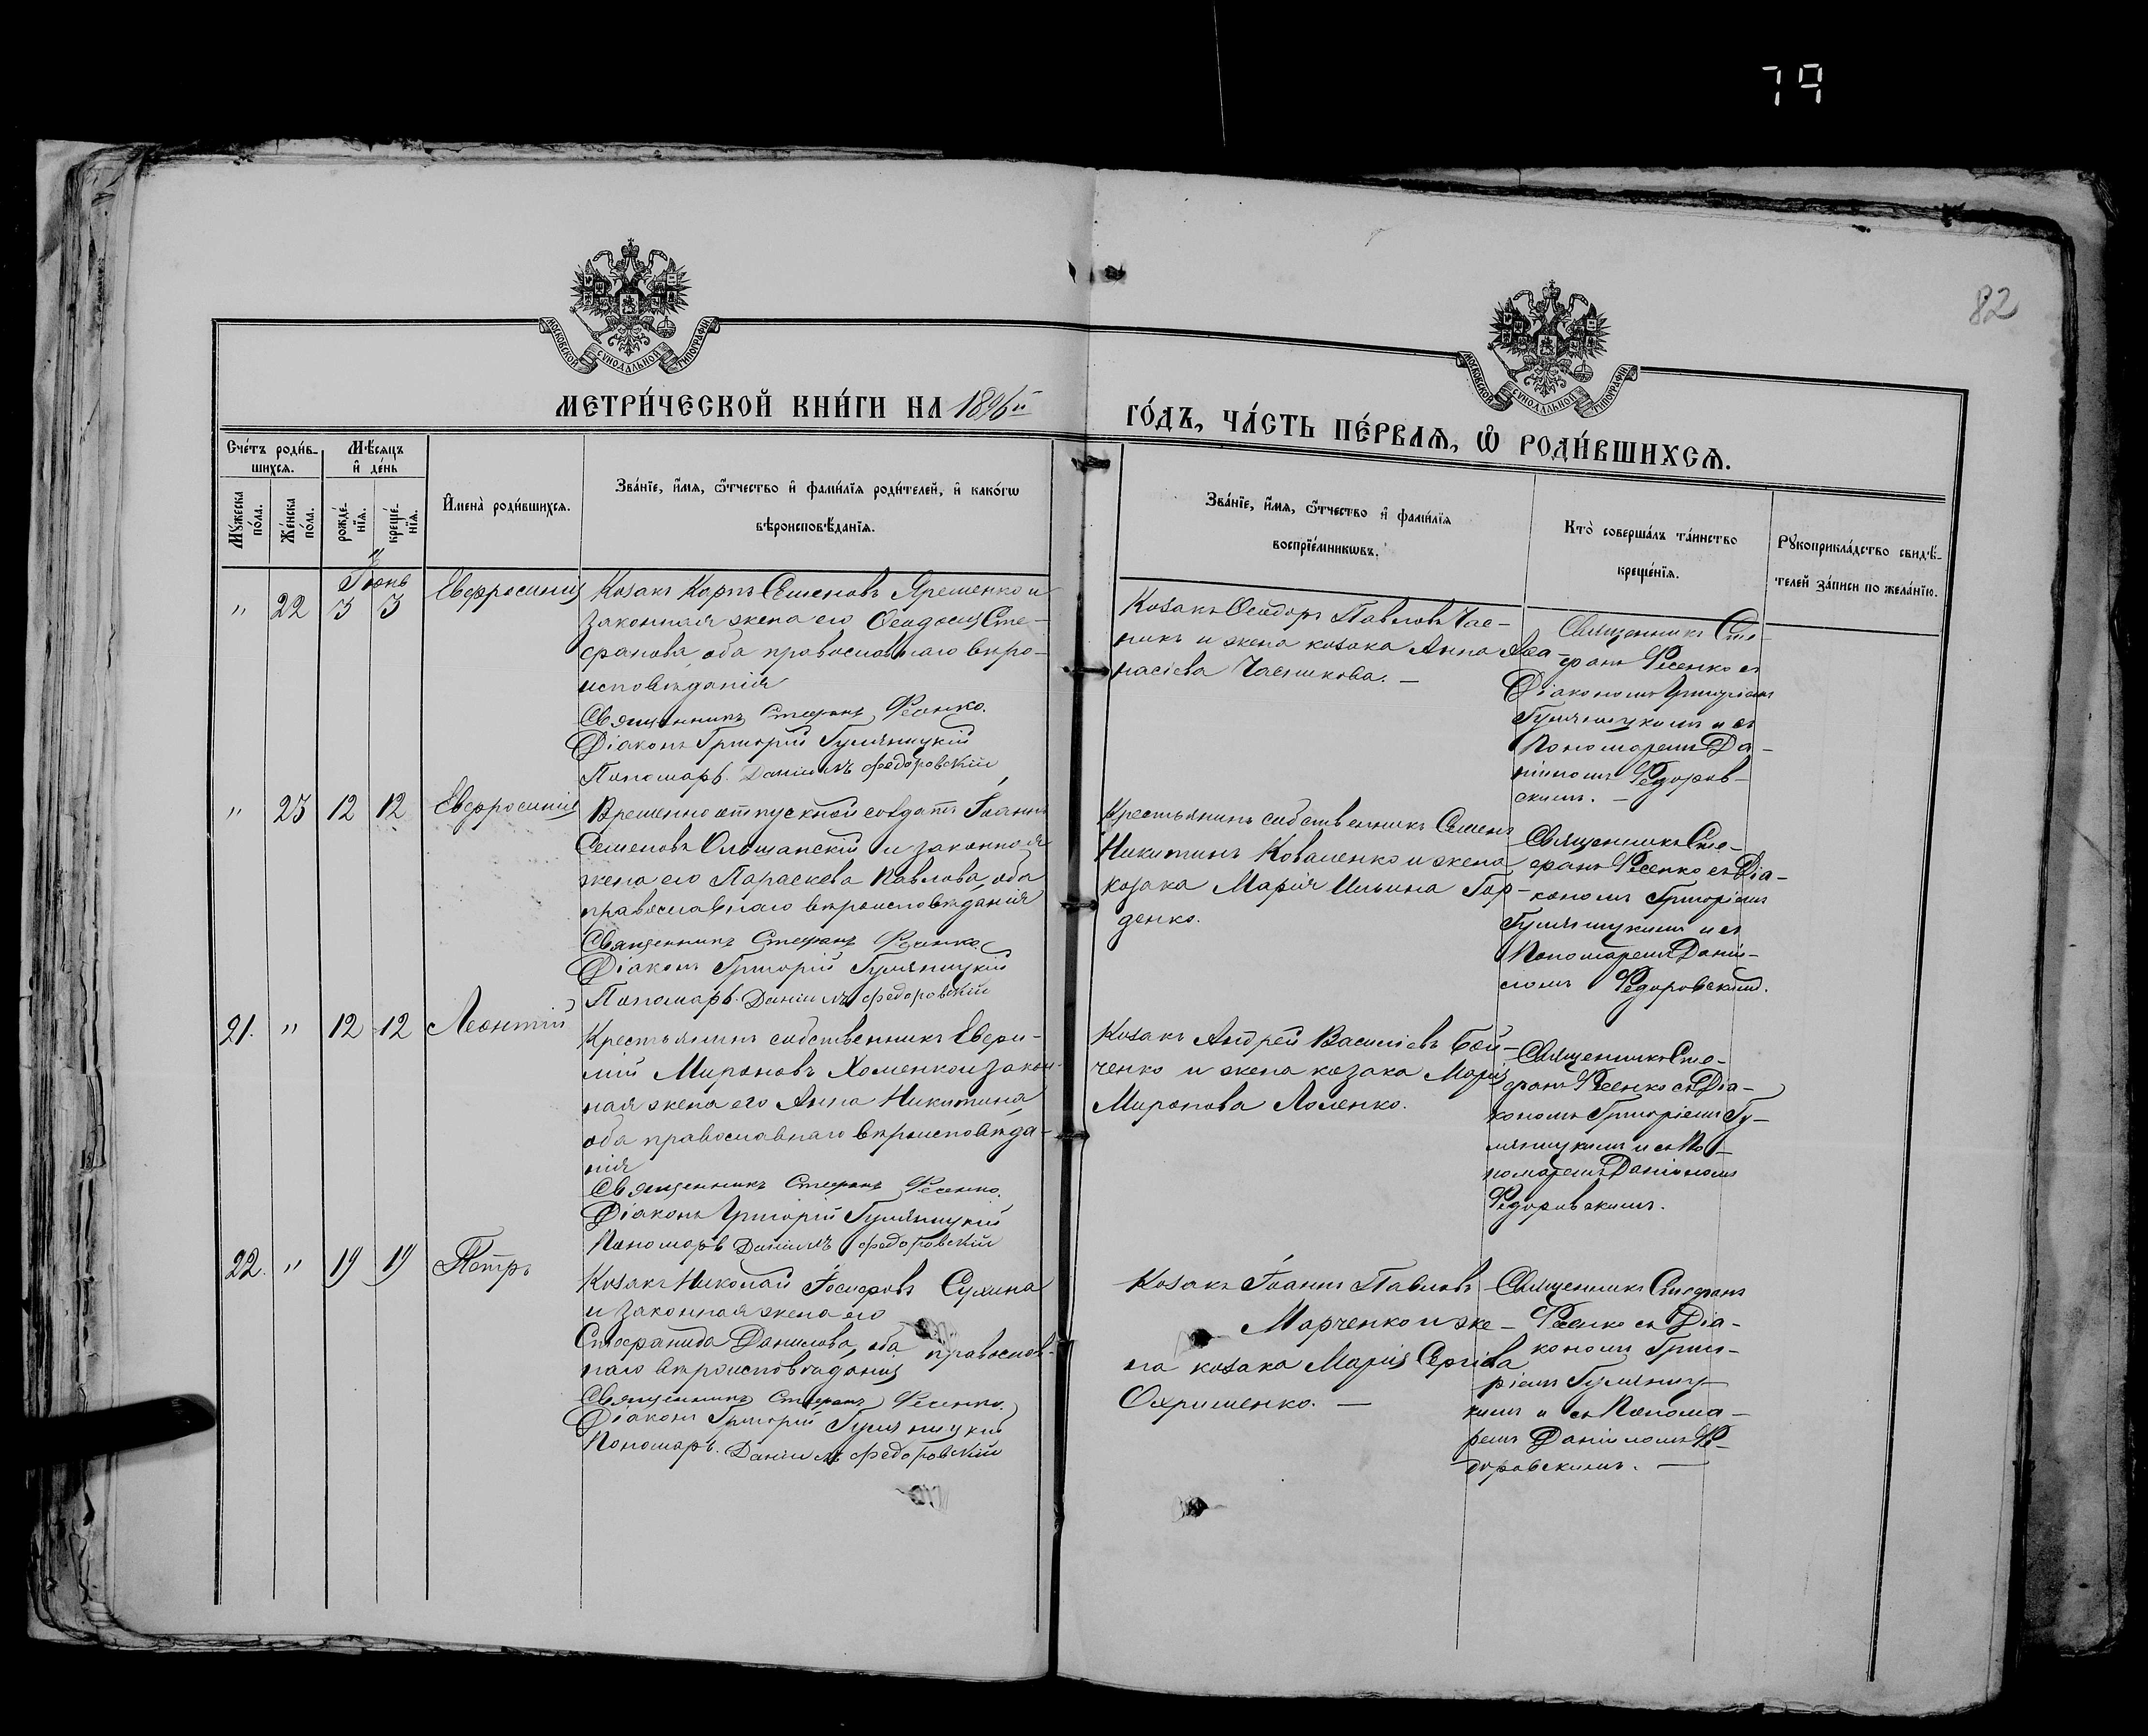 79
82
МОСКОВСКОЙ СУНОДАЛЬНОЙ ТИПОГРАФІИ
МОСКОВСКОЙ СУНОДАЛЬНОЙ ТИПОГРАФІИ
МЕТРИ́ЧЕСКОЙ КНИ́ГИ НА 1896й
ГО́ДЪ, ЧА́СТЬ ПЕ́РВАѦ, Ѡ҆ РОДИ́ВШИХСѦ.
Сче́тъ роди́в-
шихсѧ.
Мꙋ́жеска по́ла.
Же́нска по́ла.
Мѣ́сѧцъ
и҆ де́нь
рожде́-
нїѧ.
креще́-
нїѧ.
И҆мена̀ роди́вшихсѧ.
Зва́нїе, и҆́мѧ, ѻ҆́тчество и҆ фами́лїѧ роди́телей, и҆ како́гѡ
вѣроисповѣ́данїѧ.
Зва́нїе, и҆́мѧ, ѻ҆́тчество и҆ фами́лїѧ
воспрїе́мникѡвъ.
Кто̀ соверша́лъ та́инство
креще́нїѧ.
Рꙋкоприкла́дство свидѣ́-
телей за́писи по жела́нїю.
Іюнь
" 22 3 3 Евфросинія
Козакъ Карпъ Семеновъ Яременко и
законная жена его Ѳеодосія Сте-
фанова, оба православнаго вѣро-
исповѣданія
Священникъ Стефанъ Фесенко.
Діаконъ Григорій Гуляницкій
Пономарь Даніилъ Федоровскій
Козакъ Ѳеодоръ Павловъ Час-
никъ и жена козака Анна Аѳа-
насіева Часникова. —
Священникъ Сте-
фанъ Фесенко съ
Діакономъ Григоріемъ
Гуляницкимъ и съ
Пономаремъ Да-
ніиломъ Федоров-
скимъ. —
" 23 12 12 Евфросинія
Временно отпускной солдатъ Іоаннъ
Семеновъ Ольшанскій и законная
жена его Параскева Павлова, оба
православнаго вѣроисповѣданія
Священникъ Стефанъ Фесенко.
Діаконъ Григорій Гуляницкій
Пономарь Даніилъ Федоровскій
Крестьянинъ собственникъ Семенъ
Никитинъ Коваленко и жена
козака Марія Ильина Гор-
денко.
Священникъ Сте-
фанъ Фесенко съ Діа-
кономъ Григоріемъ
Гуляницкимъ и съ
Пономаремъ Даніи-
ломъ Федоровскимъ.
21. " 12 12 Леонтій
Крестьянинъ собственникъ Евфи-
мій Мироновъ Хоменко и закон-
ная жена его Анна Никитина,
оба православнаго вѣроисповѣда-
нія
Священникъ Стефанъ Фесенко.
Діаконъ Григорій Гуляницкій
Пономарь Даніилъ Федоровскій
Козакъ Андрей Василіевъ Бой-
ченко и жена козака Марія
Миронова Лоленко.
Священникъ Сте-
фанъ Фесенко съ Діа-
кономъ Григоріемъ Гу-
ляницкимъ и съ По-
номаремъ Даніиломъ
Федоровскимъ.
22. " 19 19 Петръ
Козакъ Николай Іосифовъ Сухина
и законная жена его
Стефанида Данилова, оба православ-
наго вѣроисповѣданія
Священникъ Стефанъ Фесенко.
Діаконъ Григорій Гуляницкій
Пономарь Даніилъ Федоровскій
Козакъ Іоаннъ Павловъ
Марченко и же-
на козака Марія Сергіева
Охрименко. —
Священникъ Стефанъ
Фесенко съ Діа-
кономъ Григо-
ріемъ Гуляниц-
кимъ и съ Понома-
ремъ Даніиломъ Фе-
доровскимъ. —